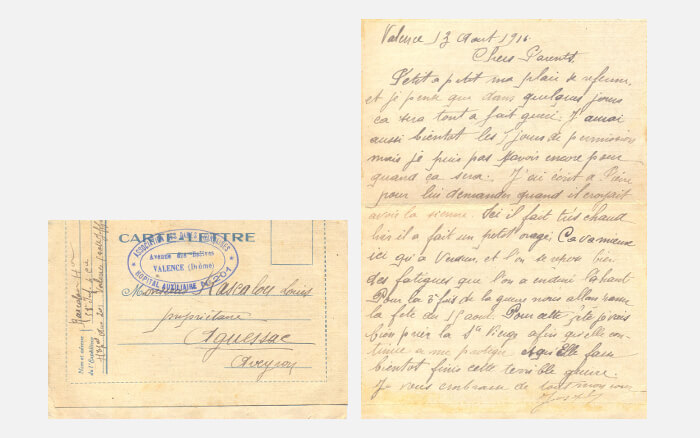 CARTE-LETTRE
ASSOCIATION DES DAMES FRANÇAISES
Avenue des Balives
VALENCE (Drôme)
HOPITAL AUXILIAIRE N° 201
Monsieur Mascalbes Louis
propriétaire
Aguessac
Aveyron
Nom et adresse
de l'Expéditeur
Valence 13 Aout 1916.
Chers Parents.
Petit a petit ma plaie se referme
et je pense que dans quelques jours
ca sera tout a fait gueri. J'aurai
aussi bientot les 7 jours de permission
mais je puis pas savoir encore pour
quand ca sera. J'ai ecrit a
pour lui demander quand il croyait
avoir la sienne. Ici il fait très chaud
hier il a fait un petit orage. Ca va mieux
ici qu'a Verdun et l'on se repose bien
des fatigues que l'on a enduré
Pour la 3e fois de la guerre nous allons
la fete du 15 aout. Pour cette fête je vais
bien prier la Ste Vierge afin qu'elle con-
tinue a me proteger. Qu'Elle fasse
bientot finir cette terrible guerre.
Je vous embrasse de tout mon coeur
Joseph